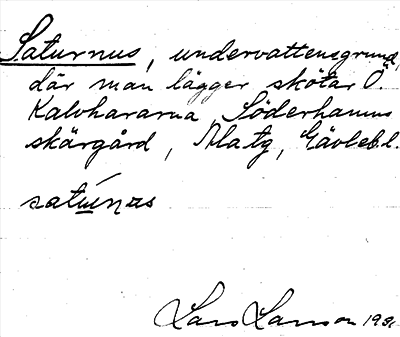 Saturnus, undervattensgrund,
där man lägger skötar Ö.
Kalvhararna, Söderhamns
skärgård, Gävlebl.
satúrnas
Lars Larson 1931